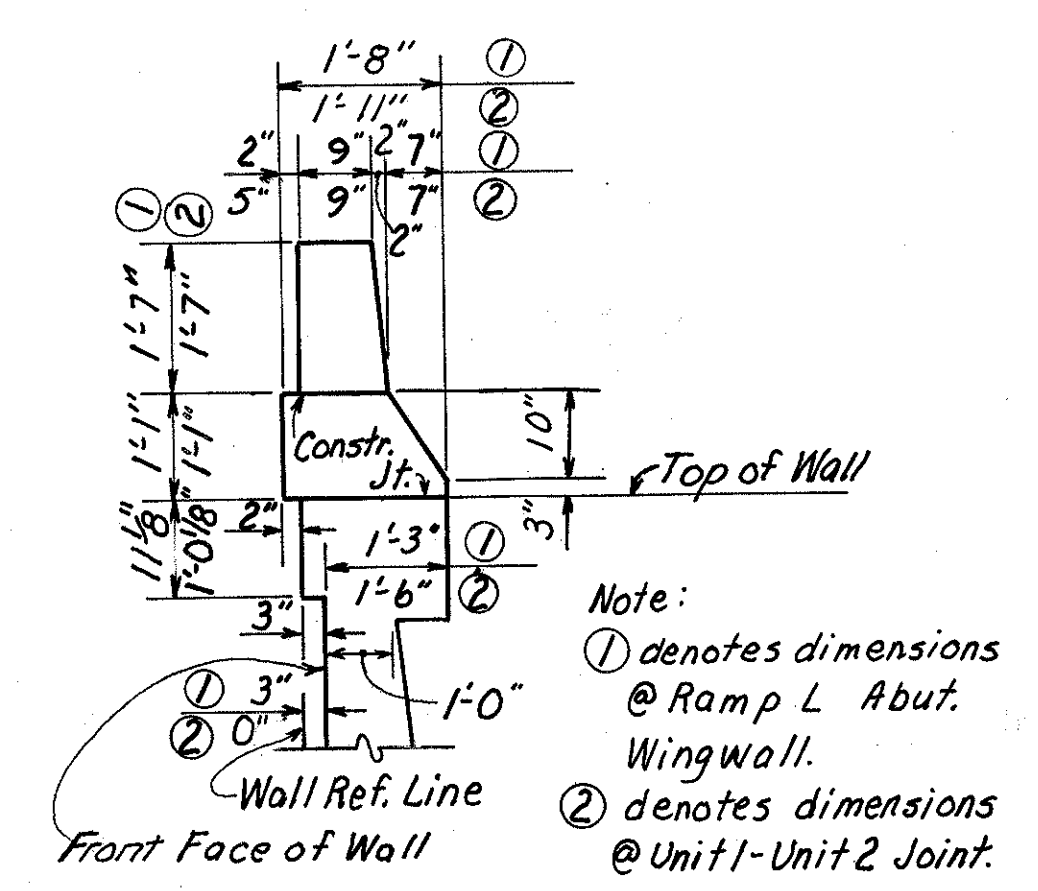 1'-8" ①
1'-11" ②
2" 9" 2" 7" ①
5" 9" 7" ②
2"
① ②
1'-7" 1'-7"
1'-1" 1'-1"
10"
Constr.
Jt.
Top of Wall
11 1/8" 1'-0 1/8"
2"
3"
1'-3" ①
1'-6" ②
3"
1'-0"
① 3"
② 0"
Wall Ref. Line
Front Face of Wall
Note:
① denotes dimensions
@ Ramp L Abut.
Wingwall.
② denotes dimensions
@ Unit 1-Unit 2 Joint.